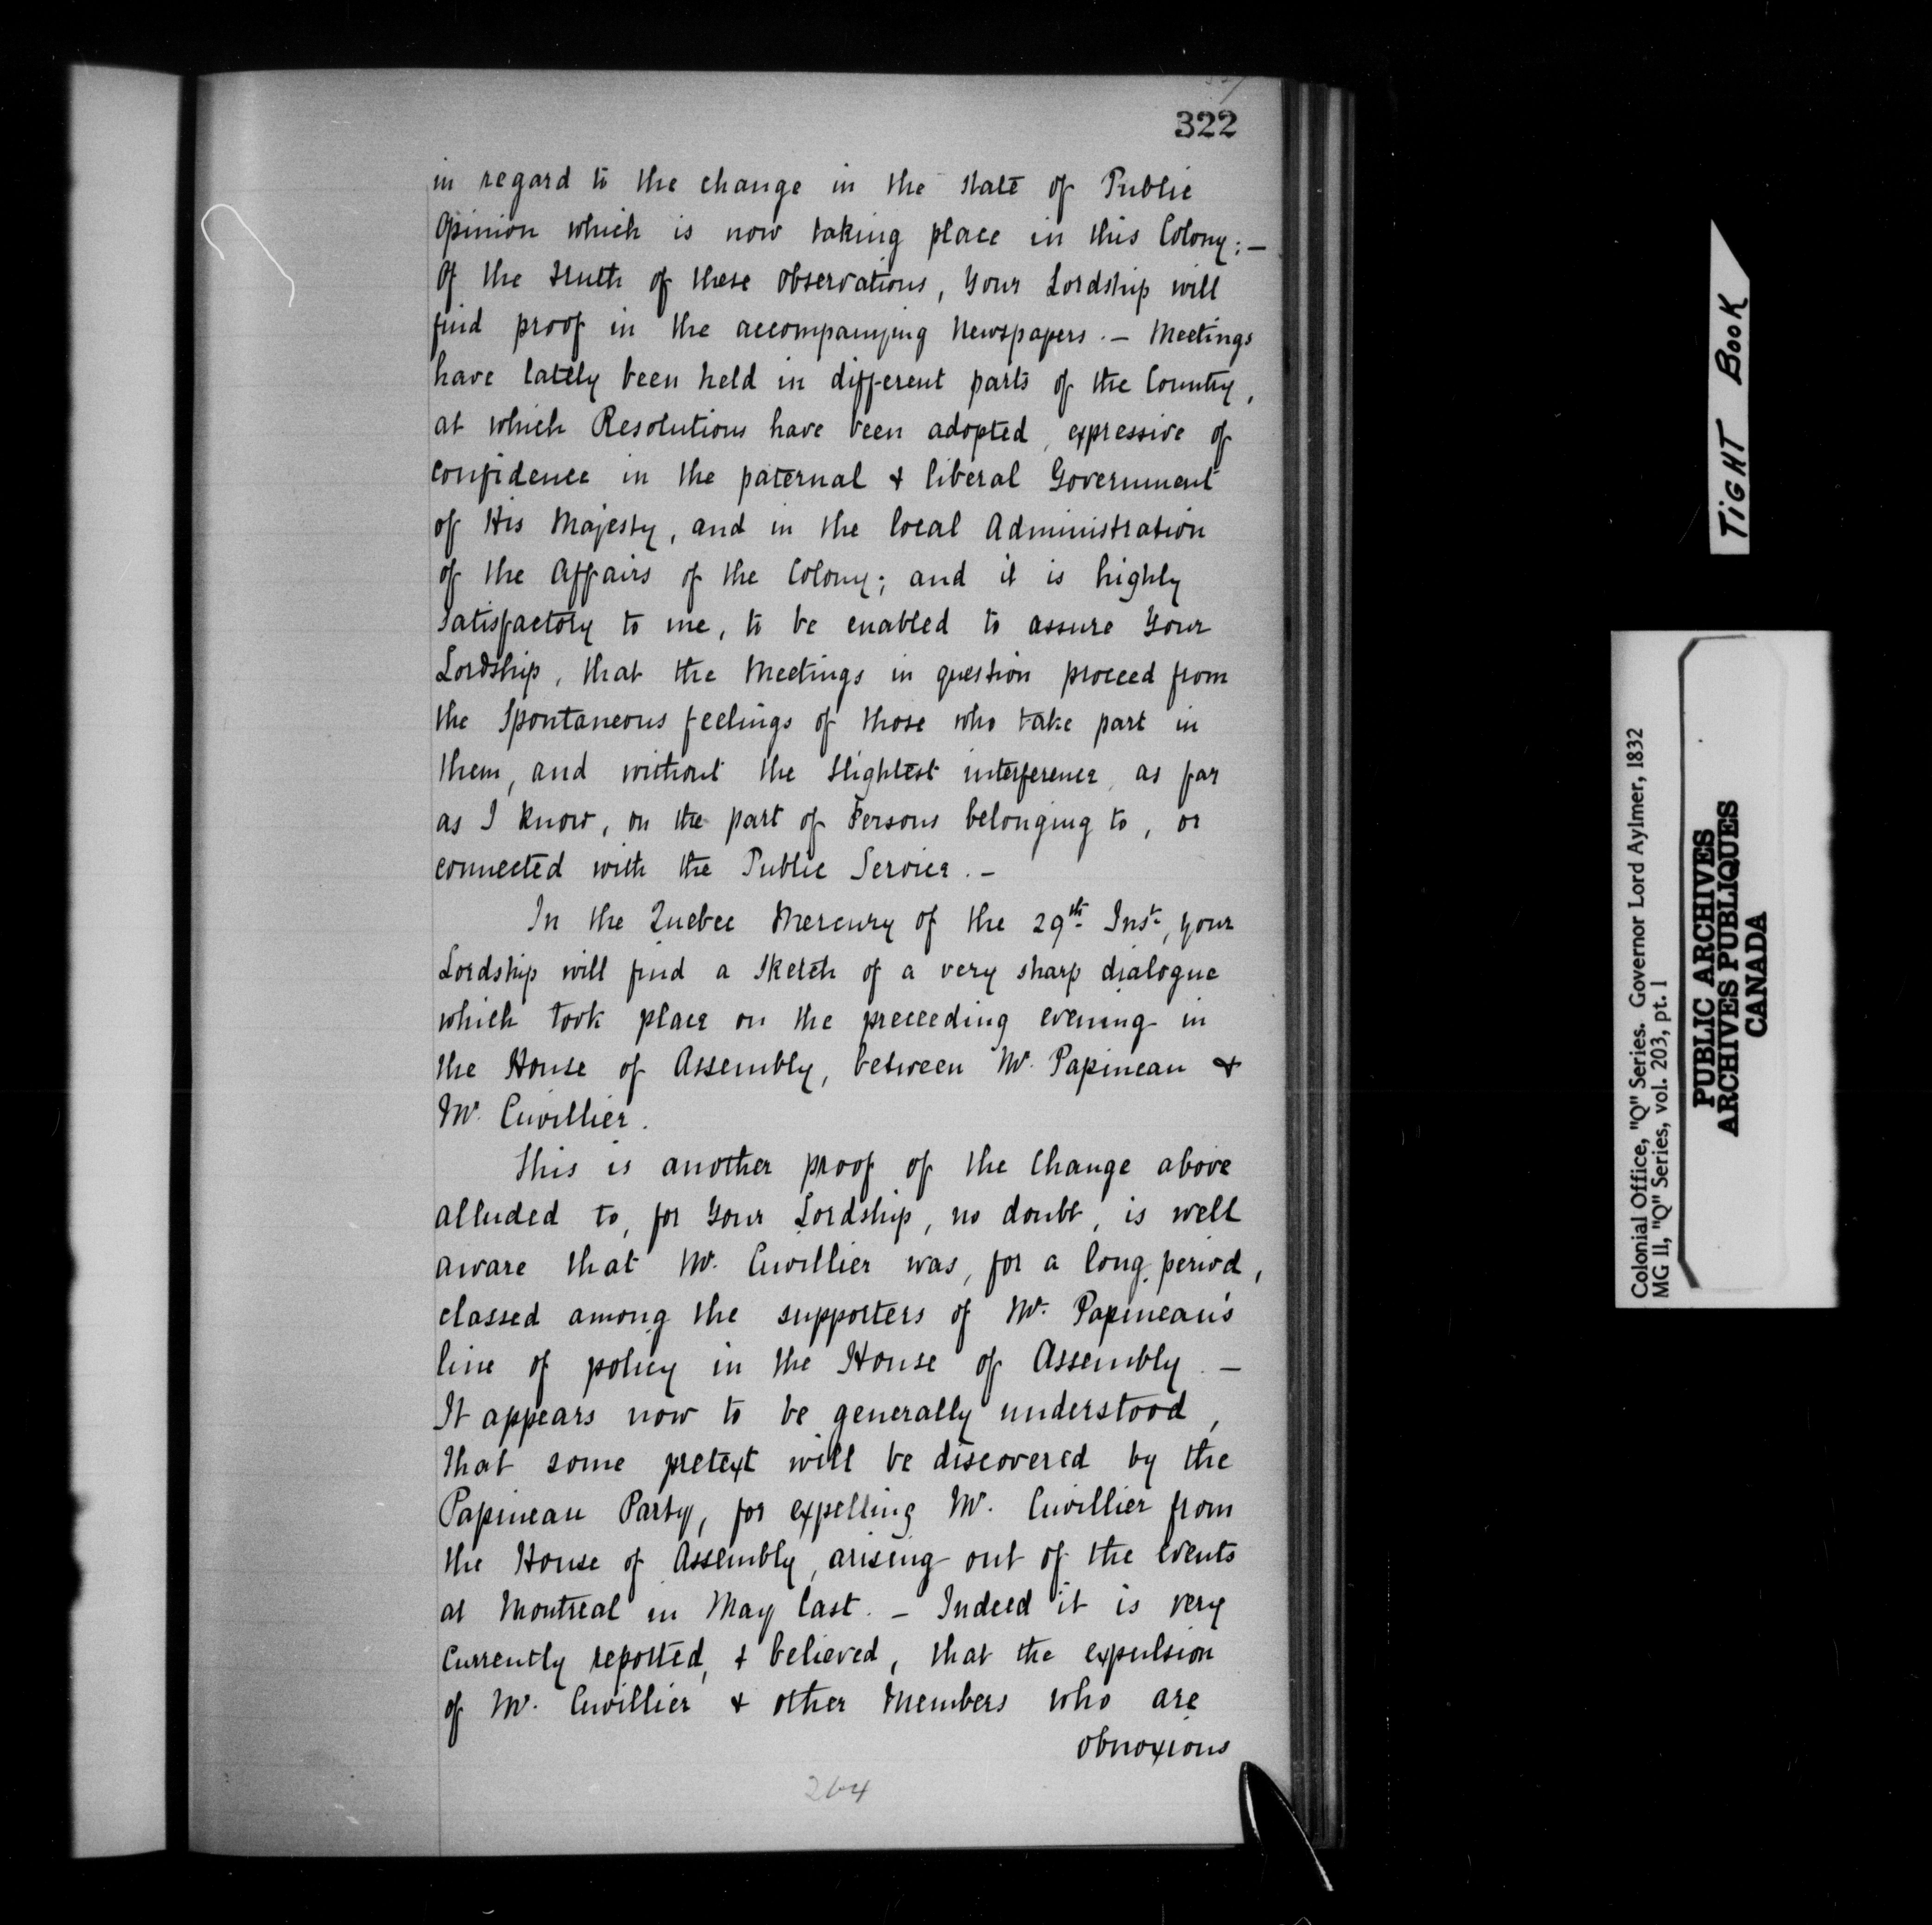 322
in regard to the change in the state of Public
Opinion which is now taking place in this Colony; —
Of the truth of these observations, Your Lordship will
find proof in the accompanying Newspapers. — Meetings
have lately been held in different parts of the Country,
at which Resolutions have been adopted, expressive of
confidence in the paternal & liberal Government
of His Majesty, and in the local Administration
of the Affairs of the Colony; and it is highly
satisfactory to me, to be enabled to assure Your
Lordship, that the Meetings in question proceed from
the Spontaneous feelings of those who take part in
them, and without the slightest interference, as far
as I know, on the part of Persons belonging to, or
connected with the Public Service. —
In the Quebec Mercury of the 29th Inst, your
Lordship will find a sketch of a very sharp dialogue
which took place on the preceeding evening in
the House of Assembly, between Mr. Papineau &
Mr. Cuvillier.
This is another proof of the Change above
alluded to, for Your Lordship, no doubt, is well
aware that Mr. Cuvillier was, for a long period,
classed among the supporters of Mr. Papineau's
line of policy in the House of Assembly. —
It appears now to be generally understood,
that some pretext will be discovered by the
Papineau Party, for expelling Mr. Cuvillier from
the House of Assembly, arising out of the events
at Montreal in May last. — Indeed it is very
Currently reported, & believed, that the expulsion
of Mr. Cuvillier & other Members who are
obnoxious
264
TIGHT BOOK
Colonial Office, "Q" Series. Governor Lord Aylmer, 1832
MG 11, "Q" Series, vol. 203, pt. 1
PUBLIC ARCHIVES
ARCHIVES PUBLIQUES
CANADA